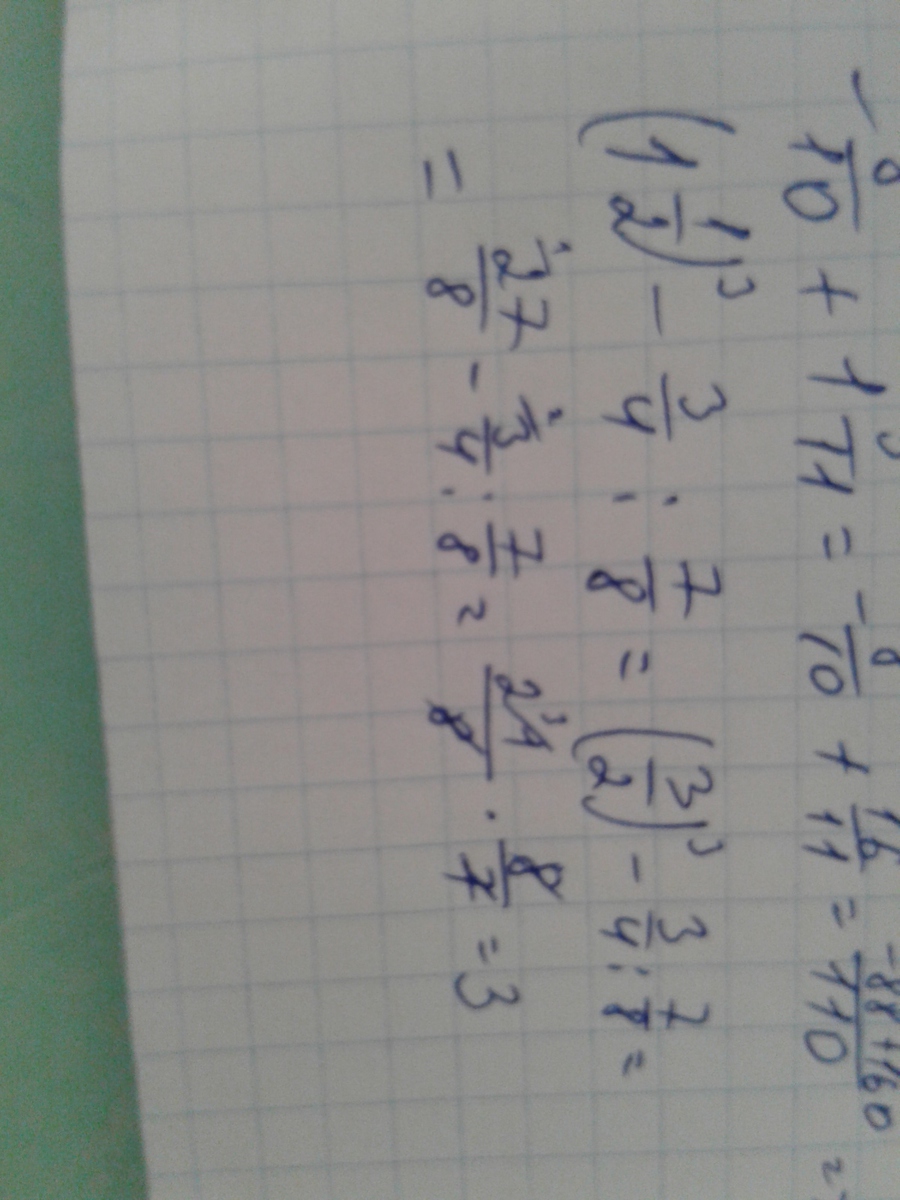 -8/10 + 1 5/11 = -8/10 + 16/11 = (-88+160)/110 =
(1 1/2)³ - 3/4 : 7/8 = (3/2)³ - 3/4 : 7/8 =
= 27/8 - 3/4 : 7/8 = 21/8 · 8/7 = 3